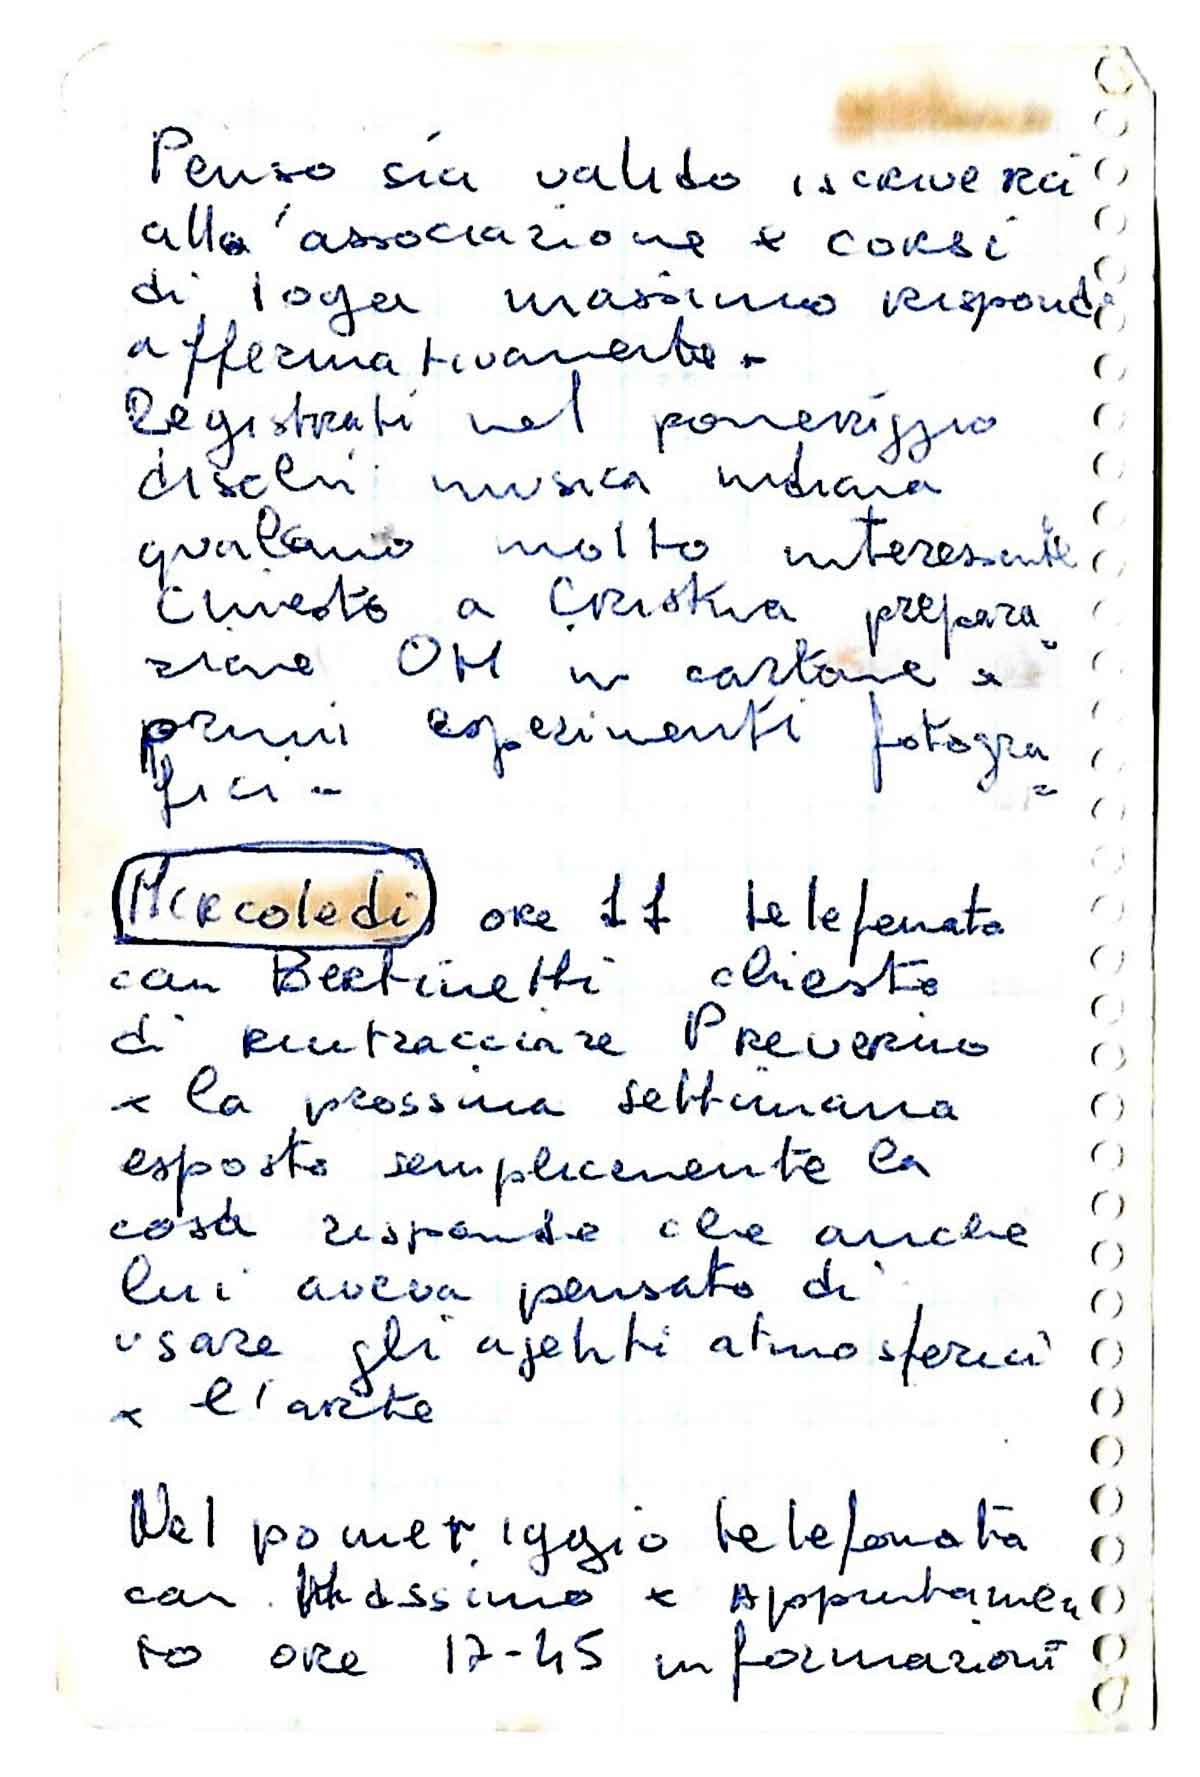 Penso sia valido iscriverci
alla associazione x corsi
di Ioga massimo risponde
affermativamente -
Registrati nel pomeriggio
dischi musica indiana
qualcuno molto interessante
Chiesto a Cristina prepara
zione OM in cartone e
primi esperimenti fotogra
fici -
Mercoledì ore 11 telefonata
con Bertinetti chiesto
di rintracciare Preverino
x la prossima settimana
esposto semplicemente la
cosa risponde che anche
lui aveva pensato di
usare gli agenti atmosferici
x l'arte
Nel pomeriggio telefonata
con Massimo x Appuntamen
to ore 17-45 informazioni